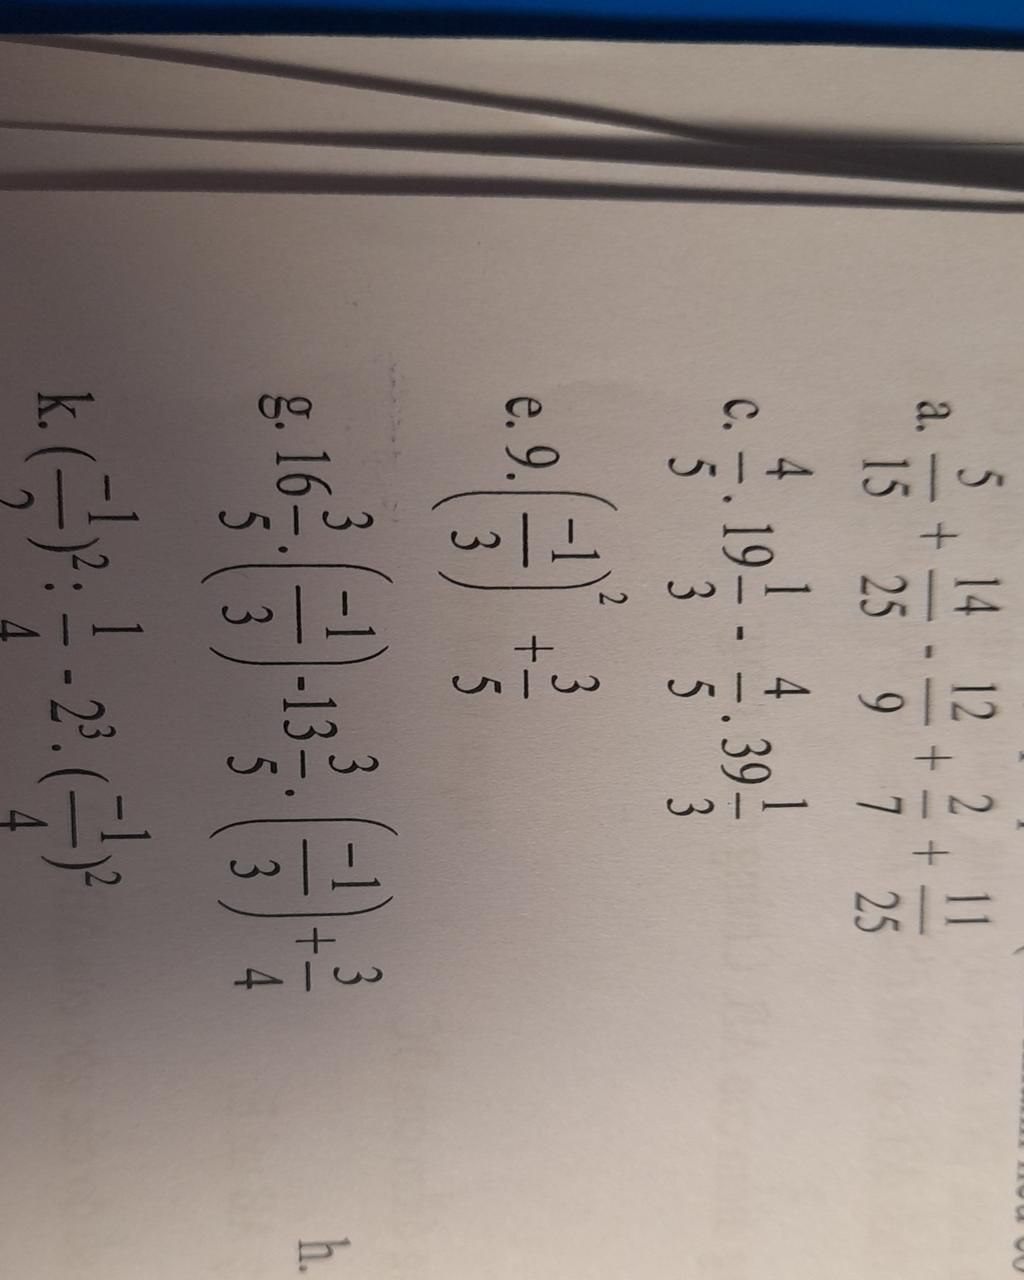 a. 5/15 + 14/25 - 12/9 + 2/7 + 11/25
c. 4/5 . 19 1/3 - 4/5 . 39 1/3
e. 9. (-1/3)² + 3/5
g. 16 3/5 . (-1/3) -13 3/5 . (-1/3) + 3/4
h.
k. (-1/2)² : 1/4 - 2³ . (-1/4)²